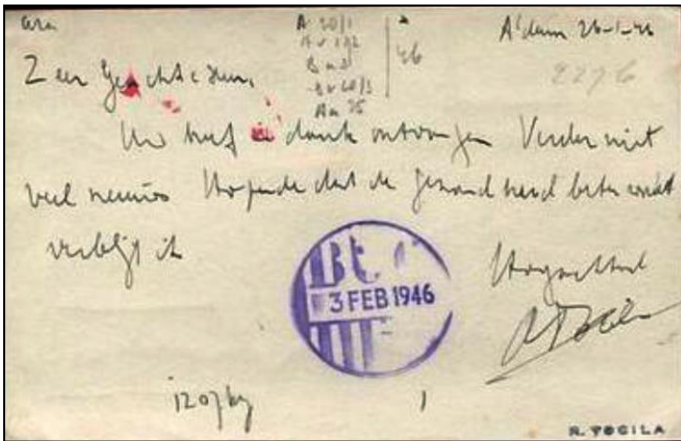 A'dam 26-1-46
A 20/1
46
2276
Zeer Geachte Heer,
Uw brief in dank ontvangen Verder niet
veel nieuws Hopende dat de gezondheid beter wordt
verblijf ik
Hoogachtend
3 FEB 1946
1
R. POGILA